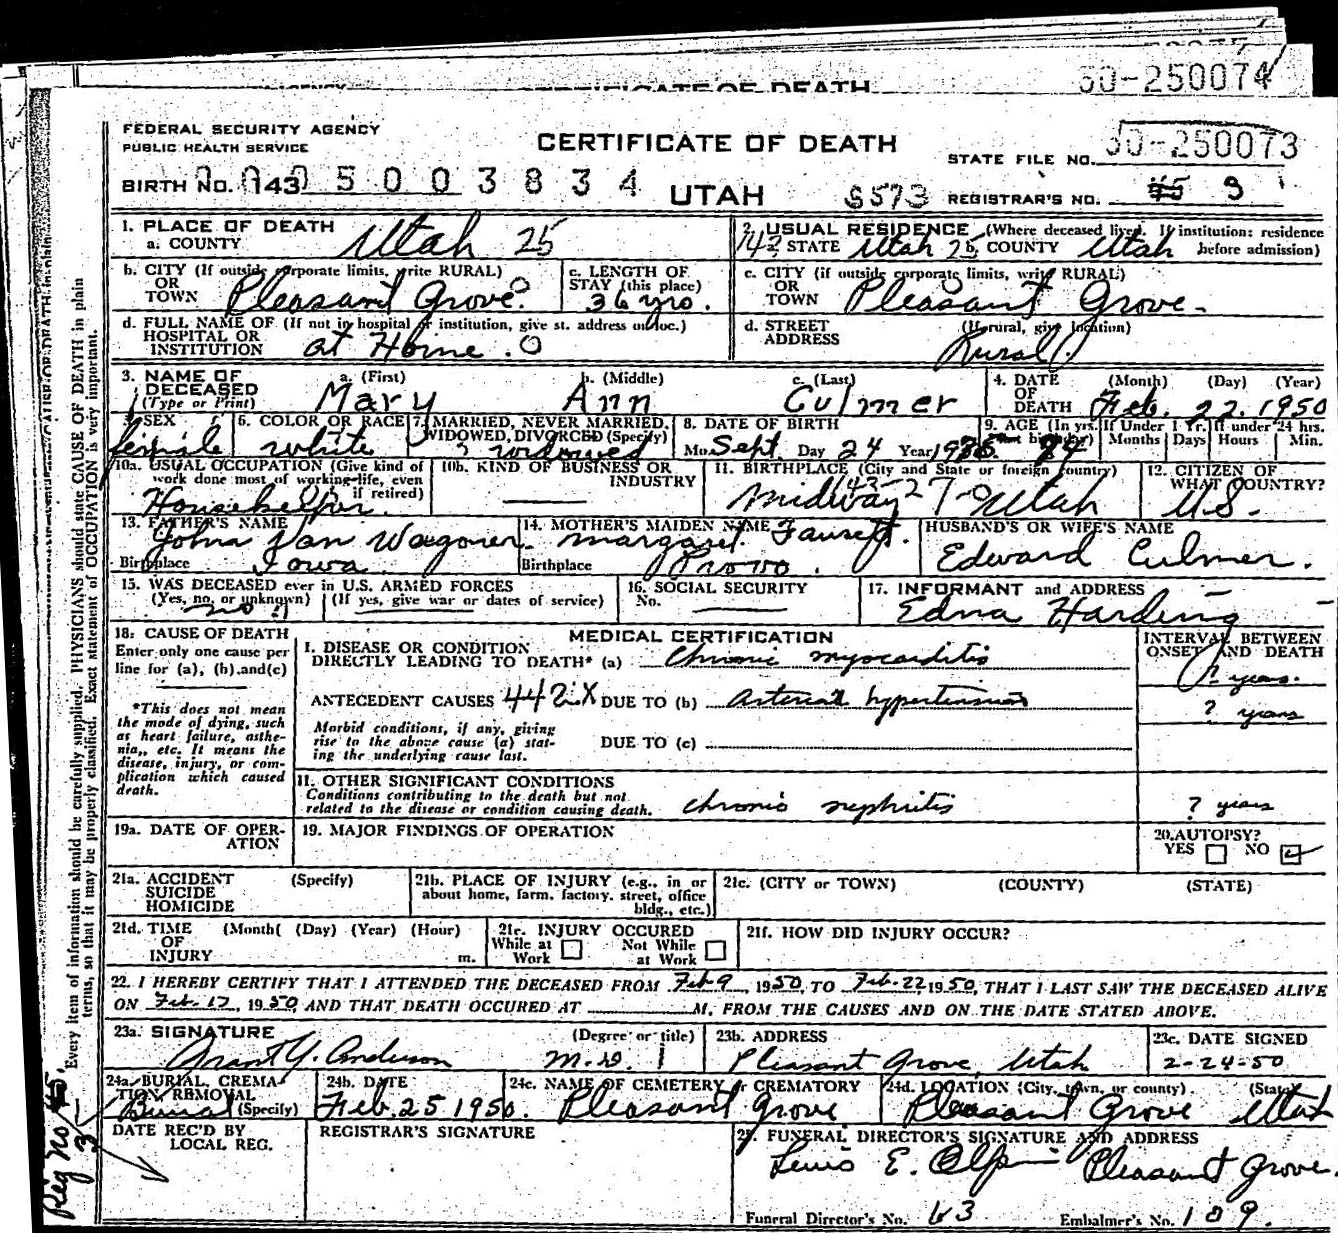 50-250074
CERTIFICATE OF DEATH
FEDERAL SECURITY AGENCY
PUBLIC HEALTH SERVICE
CERTIFICATE OF DEATH
STATE FILE NO. 50-250073
BIRTH NO. 143 05003834
UTAH
REGISTRAR'S NO. 45 3
1. PLACE OF DEATH
a. COUNTY Utah 25
2. USUAL RESIDENCE (Where deceased lived. If institution: residence before admission)
a. STATE Utah 25 b. COUNTY Utah
b. CITY (If outside corporate limits, write RURAL) OR TOWN Pleasant Grove.
c. LENGTH OF STAY (this place) 36 yrs.
c. CITY (if outside corporate limits, write RURAL) OR TOWN Pleasant Grove.
d. FULL NAME OF (If not in hospital or institution, give st. address or loc.) HOSPITAL OR INSTITUTION at Home. 0
d. STREET ADDRESS (If rural, give location) Rural.
3. NAME OF DECEASED (Type or Print)
a. (First) Mary b. (Middle) Ann c. (Last) Culmer
4. DATE OF DEATH (Month) (Day) (Year) Feb. 22. 1950
5. SEX female
6. COLOR OR RACE white
7. MARRIED, NEVER MARRIED, WIDOWED, DIVORCED (Specify) widowed
8. DATE OF BIRTH Mo. Sept Day 24 Year
9. AGE (In yrs. last birthday) 84 If Under 1 Yr. Months Days If under 24 hrs. Hours Min.
10a. USUAL OCCUPATION (Give kind of work done most of working life, even if retired) Househelper.
10b. KIND OF BUSINESS OR INDUSTRY
11. BIRTHPLACE (City and State or foreign country) Midway Utah
12. CITIZEN OF WHAT COUNTRY? U.S.
13. FATHER'S NAME John Van Wagoner.
Birthplace Iowa
14. MOTHER'S MAIDEN NAME Margaret Faucett.
Birthplace Provo.
HUSBAND'S OR WIFE'S NAME
Edward Culmer.
15. WAS DECEASED ever in U.S. ARMED FORCES
(Yes, no, or unknown) no (If yes, give war or dates of service)
16. SOCIAL SECURITY No.
17. INFORMANT and ADDRESS
Edna Harding
18. CAUSE OF DEATH
Enter only one cause per line for (a), (b), and (c)
*This does not mean the mode of dying, such as heart failure, asthenia,, etc. It means the disease, injury, or complication which caused death.
MEDICAL CERTIFICATION
I. DISEASE OR CONDITION DIRECTLY LEADING TO DEATH* (a) Chronic myocarditis
INTERVAL BETWEEN ONSET AND DEATH
? years.
ANTECEDENT CAUSES 442X DUE TO (b) Arterial hypertension
? years
Morbid conditions, if any, giving rise to the above cause (a) stating the underlying cause last.
DUE TO (c)
II. OTHER SIGNIFICANT CONDITIONS
Conditions contributing to the death but not related to the disease or condition causing death. chronic nephritis
? years
19a. DATE OF OPERATION
19. MAJOR FINDINGS OF OPERATION
20. AUTOPSY? YES NO
21a. ACCIDENT SUICIDE HOMICIDE (Specify)
21b. PLACE OF INJURY (e.g., in or about home, farm, factory, street, office bldg., etc.)
21c. (CITY or TOWN) (COUNTY) (STATE)
21d. TIME OF INJURY (Month( (Day) (Year) (Hour) m.
21e. INJURY OCCURED While at Work Not While at Work
21f. HOW DID INJURY OCCUR?
22. I HEREBY CERTIFY THAT I ATTENDED THE DECEASED FROM Feb-9, 1950, TO Feb-22, 1950, THAT I LAST SAW THE DECEASED ALIVE
ON Feb-17, 1950, AND THAT DEATH OCCURED AT M, FROM THE CAUSES AND ON THE DATE STATED ABOVE.
23a. SIGNATURE (Degree or title)
Grant Y. Anderson M.D.
23b. ADDRESS
Pleasant Grove, Utah
23c. DATE SIGNED
2-24-50
24a. BURIAL, CREMATION, REMOVAL (Specify) Burial
24b. DATE Feb. 25 1950.
24c. NAME OF CEMETERY or CREMATORY Pleasant Grove
24d. LOCATION (City, town, or county) (State) Pleasant Grove Utah
DATE REC'D BY LOCAL REG.
REGISTRAR'S SIGNATURE
25. FUNERAL DIRECTOR'S SIGNATURE AND ADDRESS
Lewis E. Olpin Pleasant Grove.
Funeral Director's No. 63 Embalmer's No. 109.
Every item of information should be carefully supplied. PHYSICIANS should state CAUSE OF DEATH in plain
terms, so that it may be properly classified. Exact statement of OCCUPATION is very important.
Reg No 45
3